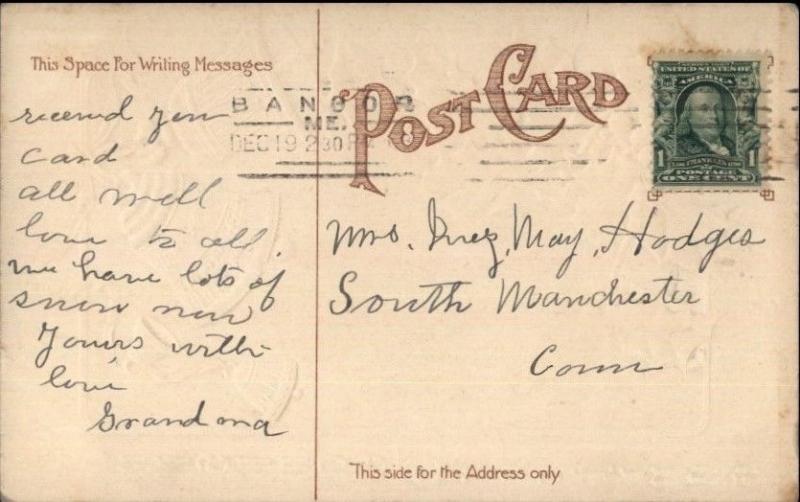 This Space For Writing Messages
POST CARD
BANGOR
ME.
DEC 19 2 30 P
UNITED STATES OF
AMERICA
1 FRANKLIN 1
POSTAGE
ONE CENT
received your
card
all well
love to all.
we have lots of
snow now
Yours with
love
Grandma
Mrs. Inez, May, Hodges
South Manchester
Conn
This side for the Address only